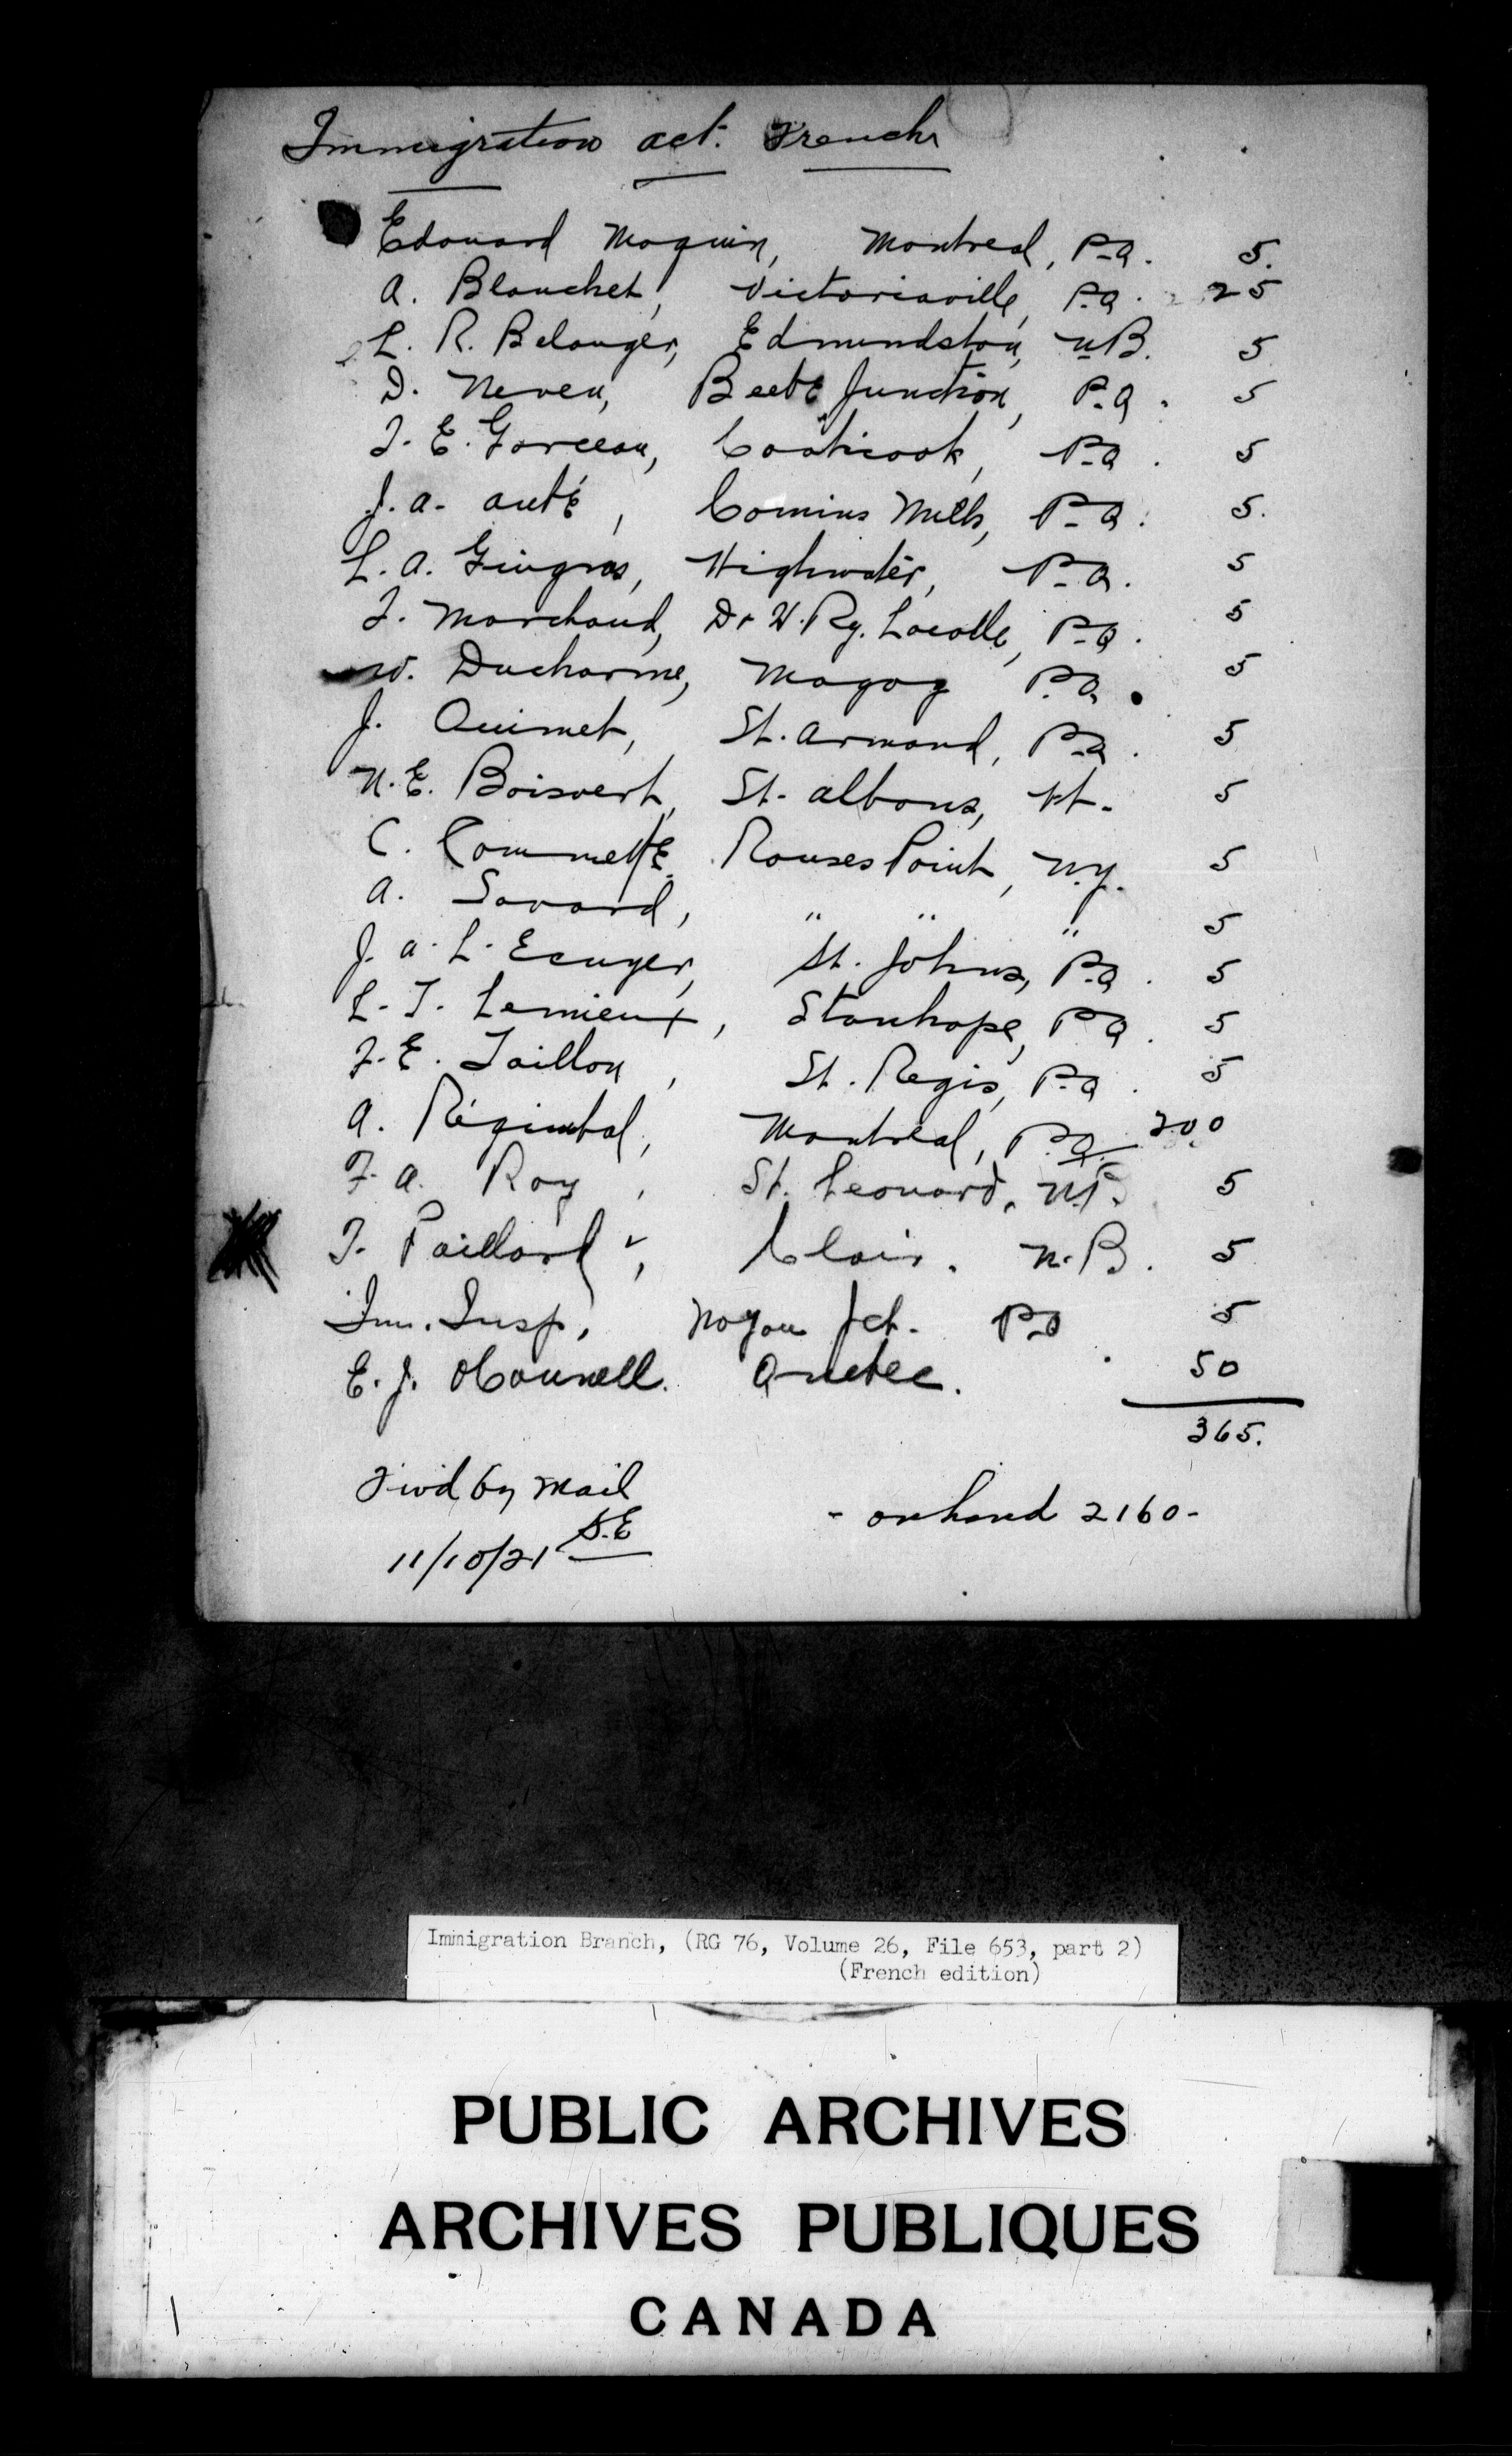 Immigration act. French
Edouard Maquin, Montreal, P.Q. 5.
A. Blanchet, Victoriaville, P.Q. 25
L. R. Belanger, Edmundston, N.B. 5
D. Neveu, Beebe Junction, P.Q. 5
J. E. Garceau, Coaticook, P.Q. 5
J. A. Aubé, Comins Mills, P.Q. 5.
L. A. Gingras, Highwater, P.Q. 5
J. Marchand, D. & H. Ry. Lacolle, P.Q. 5
W. Ducharme, Magog P.Q. 5
J. Ouimet, St. Armand, P.Q. 5
N. E. Boisvert, St. Albans, Vt. 5
C. Rouses Point, N.Y. 5
A. Savard, " " " 5
J. A. L. Ecuyer, St. Johns, P.Q. 5
L. J. Lemieux, Stanhope, P.Q. 5
J. E. Taillon, St. Regis, P.Q. 5
A. Régimbal, Montreal, P.Q. 200
F. A. Roy, St. Leonard, N.B. 5
J. Paillard, Clair. N.B. 5
Im. Insp, Noyan Jct. P.Q. 5
E. J. O'Connell. Quebec. 50
365.
Fwd by mail
- on hand 2160-
11/10/21
Immigration Branch, (RG 76, Volume 26, File 653, part 2)
(French edition)
PUBLIC ARCHIVES
ARCHIVES PUBLIQUES
CANADA